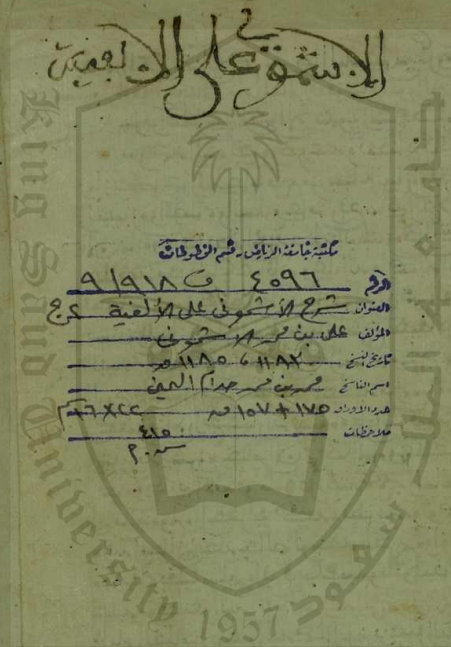 الاشموني على الالفية
مكتبة جامعة الرياض - قسم المخطوطات
الرقم ٤٠٩٦ ف ٩١٨/٩
العنوان شرح الأشموني على الألفية
المؤلف على بن محمد الاشموني
تاريخ النسخ ١١٨٣، ١١٨٥ هـ
اسم الناسخ محمد بن محمد
عدد الاوراق ١٧٥ + ١٥٧
ملاحظات ٤١٥
King Saud University
1957
جامعة الملك سعود